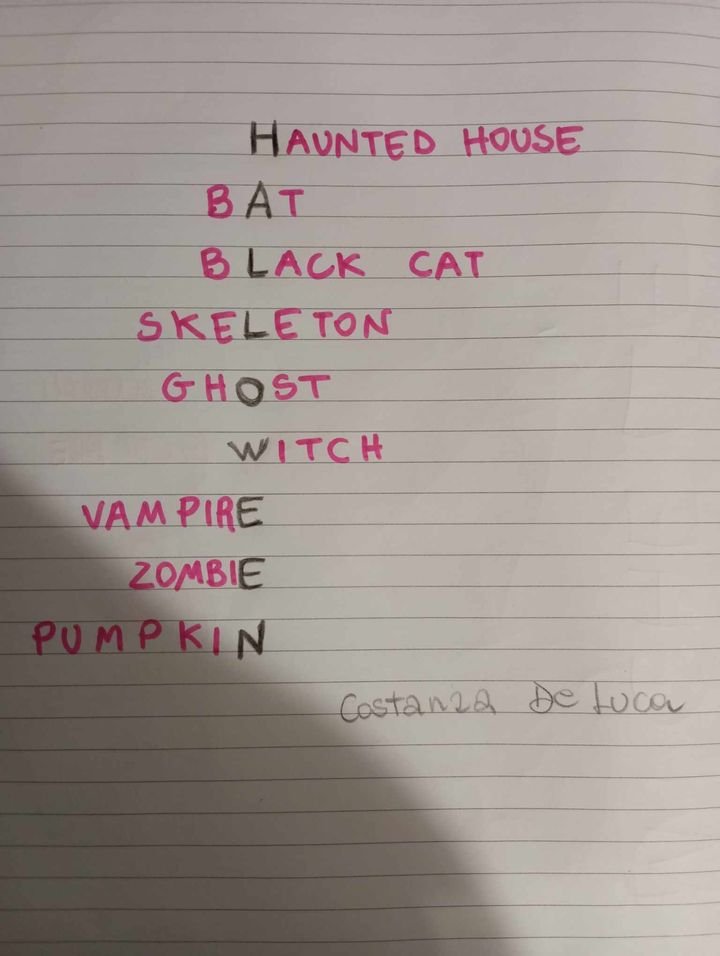 HAUNTED HOUSE
BAT
BLACK CAT
SKELETON
GHOST
WITCH
VAMPIRE
ZOMBIE
PUMPKIN
Costanza De Luca